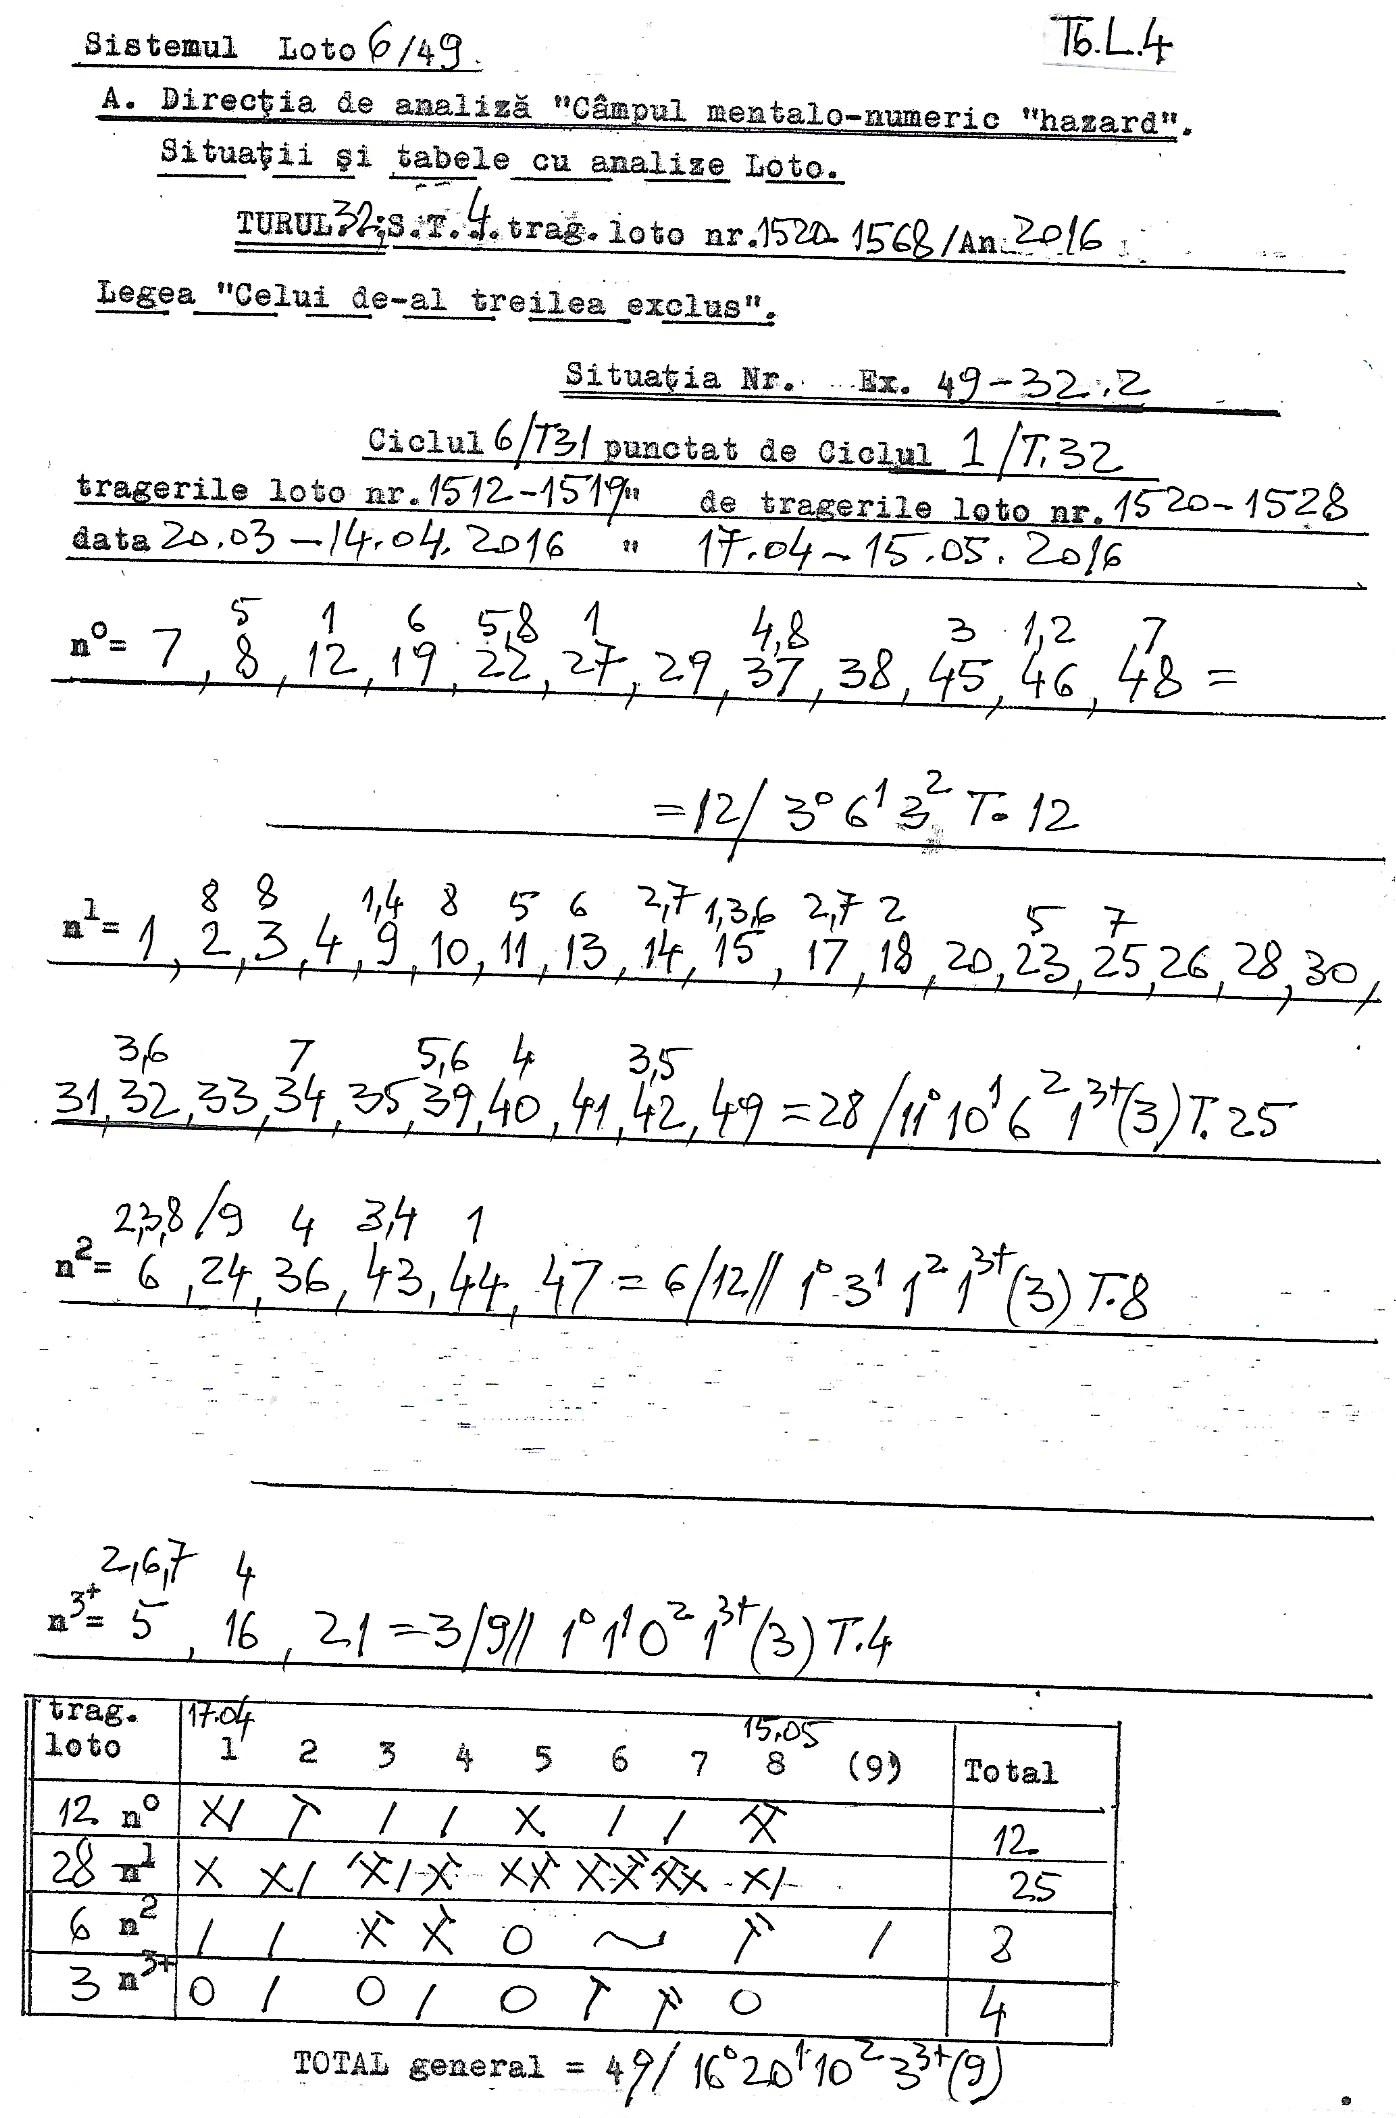 Sistemul Loto 6/49.
Tb.L.4
A. Direcţia de analiză "Câmpul mentalo-numeric "hazard".
Situaţii şi tabele cu analize Loto.
TURUL.32;S.T.4. trag. loto nr.1520-1568/An 2016
Legea "Celui de-al treilea exclus".
Situaţia Nr. Ex. 49-32.2
Ciclul 6/T31 punctat de Ciclul 1/T.32
tragerile loto nr.1512-1519 " de tragerile loto nr. 1520-1528
data 20.03-14.04.2016 " 17.04-15.05.2016
5 1 6 5,8 1 4,8 3 1,2 7
n⁰= 7, 8, 12, 19, 22, 27, 29, 37, 38, 45, 46, 48 =
=12/ 3⁰ 6¹ 3² T. 12
8 8 1,4 8 5 6 2,7 1,3,6 2,7 2 5 7
n¹= 1, 2, 3, 4, 9, 10, 11, 13, 14, 15, 17, 18, 20, 23, 25, 26, 28, 30,
3,6 7 5,6 4 3,5
31, 32, 33, 34, 35, 39, 40, 41, 42, 49 = 28/11⁰ 10¹ 6² 1³⁺(3) T. 25
2,3,8/9 4 3,4 1
n²= 6, 24, 36, 43, 44, 47 = 6/12// 1⁰ 3¹ 1² 1³⁺(3) T.8
2,6,7 4
n³⁺= 5, 16, 21 = 3/9// 1⁰ 1¹ 0² 1³⁺(3) T.4
trag. 17.04 15.05
loto 1 2 3 4 5 6 7 8 (9) Total
12 n⁰ 12
28 n¹ 25
6 n² 0 8
3 n³⁺ 0 0 0 0 4
TOTAL general = 49/ 16⁰ 20¹ 10² 3³⁺(9)